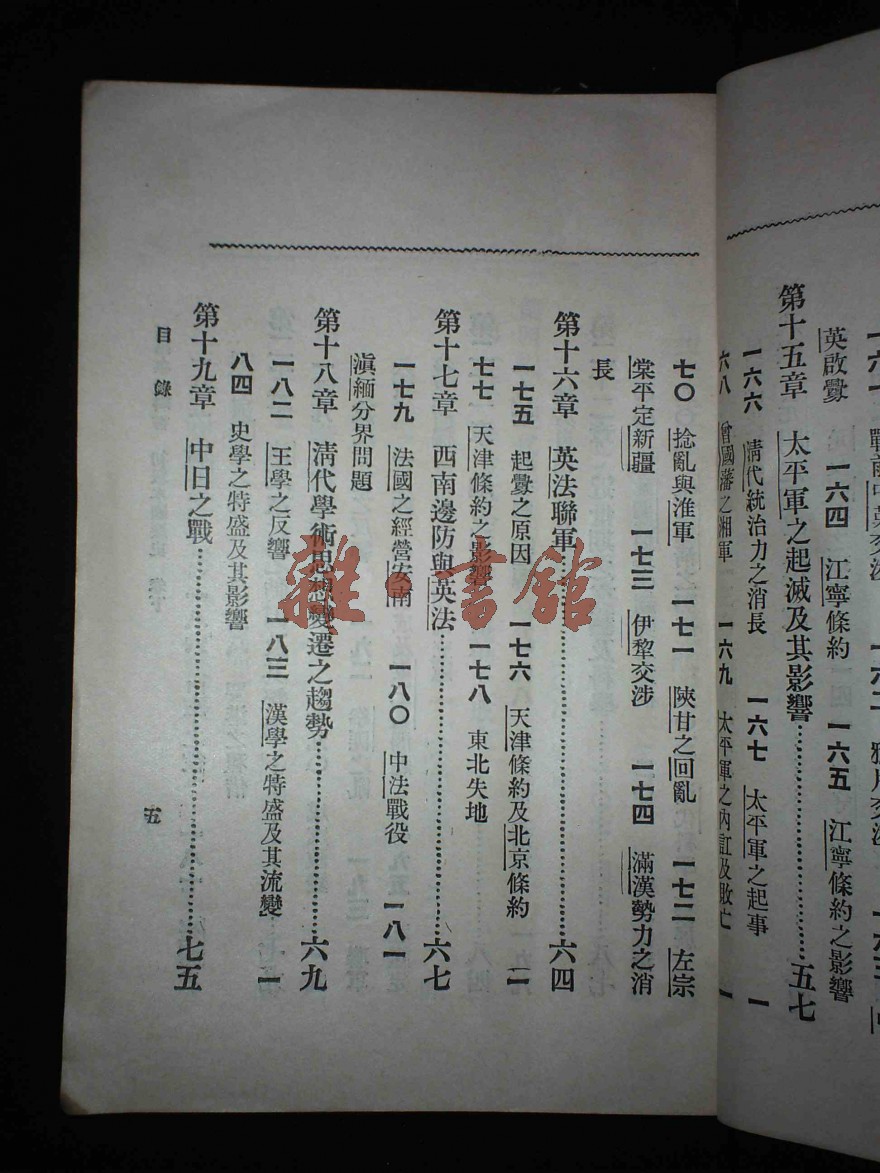 英啟釁 一六四 江寧條約 一六五 江寧條約之影響
第十五章 太平軍之起滅及其影響…………五七
一六六 清代統治力之消長 一六七 太平軍之起事 一
六八 曾國藩之湘軍 一六九 太平軍之內訌及敗亡 一
七〇 捻亂與淮軍 一七一 陝甘之回亂 一七二 左宗
棠平定新疆 一七三 伊犂交涉 一七四 滿漢勢力之消
長
第十六章 英法聯軍…………六四
一七五 起釁之原因 一七六 天津條約及北京條約 一
七七 天津條約之影響 一七八 東北失地
第十七章 西南邊防與英法…………六七
一七九 法國之經營安南 一八〇 中法戰役 一八一
滇緬分界問題
第十八章 清代學術思想變遷之趨勢…………六九
一八二 王學之反響 一八三 漢學之特盛及其流變 一
八四 史學之特盛及其影響
第十九章 中日之戰…………七五
目錄
五
雜·書館